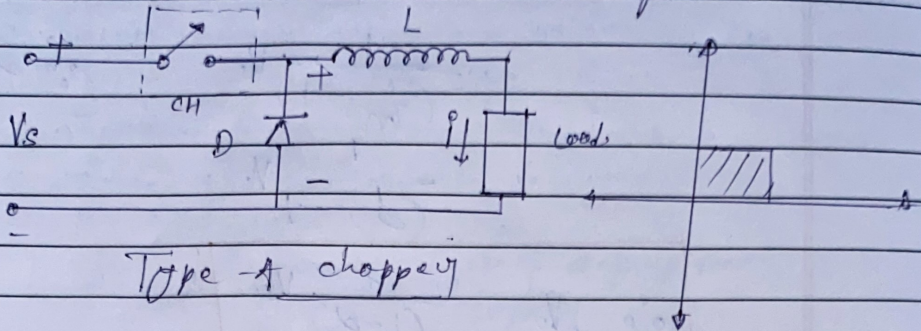 L
+
+
CH
Vs
D
i
Load
-
-
Type -A chopper